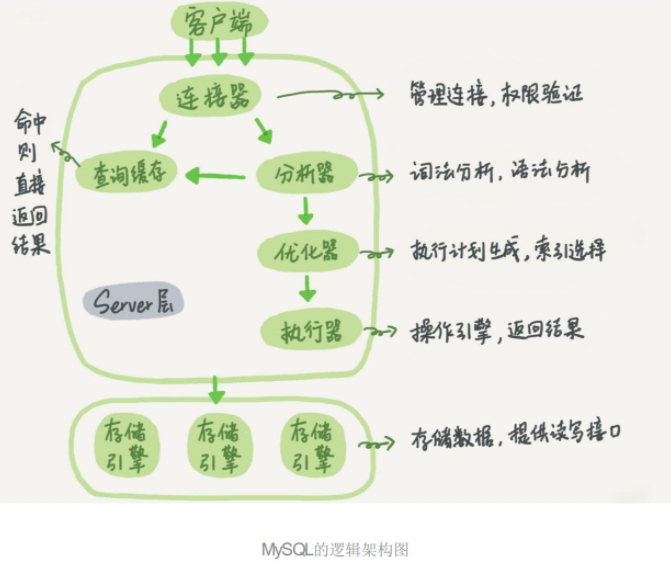 客户端
连接器
管理连接，权限验证
命中
则
直接
返回
结果
查询缓存
分析器
词法分析，语法分析
优化器
执行计划生成，索引选择
Server层
执行器
操作引擎，返回结果
存储
引擎
存储
引擎
存储
引擎
存储数据，提供读写接口
MySQL的逻辑架构图